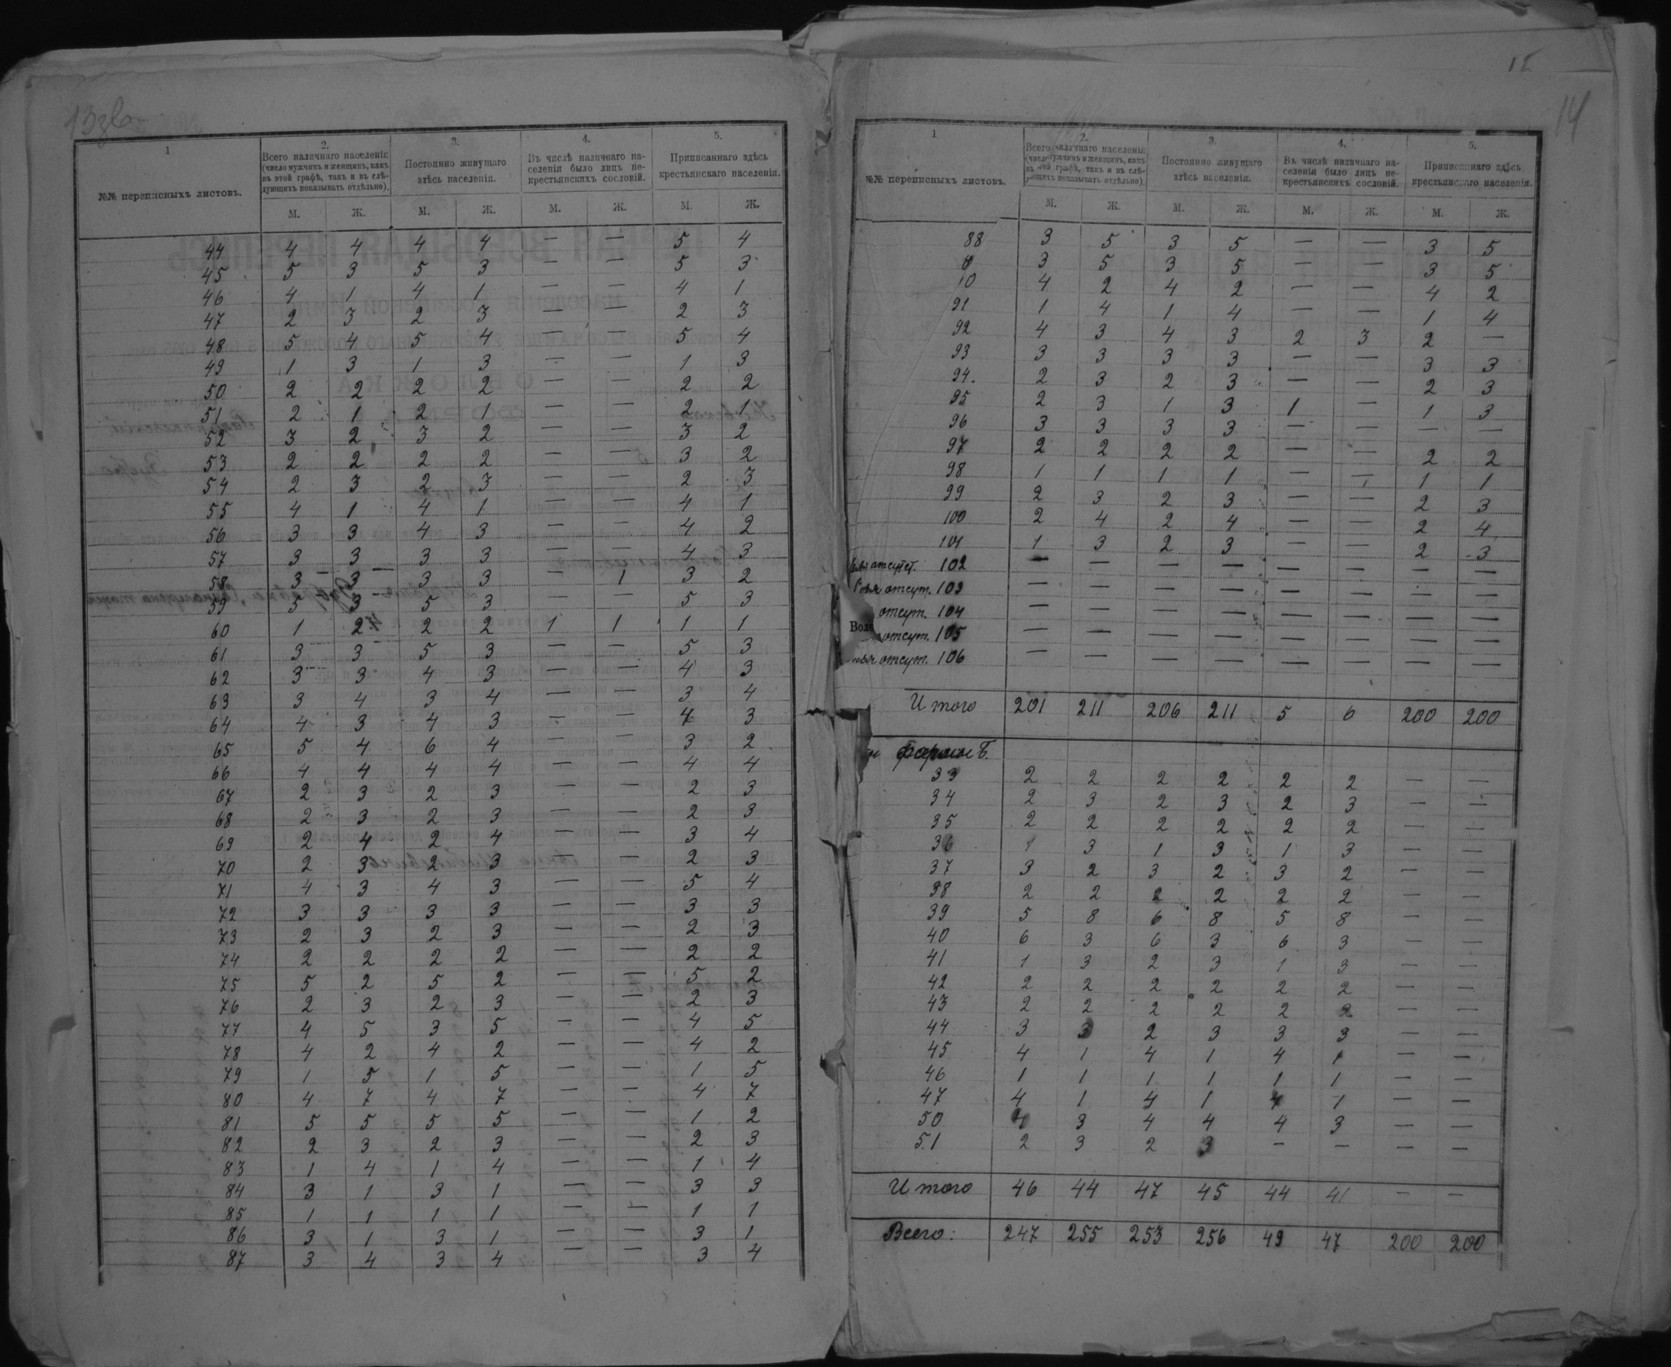 13зв
1
2.
3.
4.
5.
№№ переписныхъ листовъ.
Всего наличнаго населенія: (число мужчинъ и женщинъ, какъ въ этой графѣ, такъ и въ слѣдующихъ показывать отдѣльно).
Постоянно живущаго здѣсь населенія.
Въ числѣ наличнаго населенія было лицъ некрестьянскихъ сословій.
Приписаннаго здѣсь крестьянскаго населенія.
М. Ж. М. Ж. М. Ж. М. Ж.
44 4 4 4 4 — — 5 4
45 5 3 5 3 — — 5 3
46 4 1 4 1 — — 4 1
47 2 3 2 3 — — 2 3
48 5 4 5 4 — — 5 4
49 1 3 1 3 — — 1 3
50 2 2 2 2 — — 2 2
51 2 1 2 1 — — 2 1
52 3 2 3 2 — — 3 2
53 2 2 2 2 — — 3 2
54 2 3 2 3 — — 2 3
55 4 1 4 1 — — 4 1
56 3 3 4 3 — — 4 2
57 3 3 3 3 — — 4 3
58 3 3 3 3 — 1 3 2
59 5 3 5 3 — — 5 3
60 1 2 2 2 1 1 1 1
61 3 3 5 3 — — 5 3
62 3 3 4 3 — — 4 3
63 3 4 3 4 — — 3 4
64 4 3 4 3 — — 4 3
65 5 4 6 4 — — 3 2
66 4 4 4 4 — — 4 4
67 2 3 2 3 — — 2 3
68 2 3 2 3 — — 2 3
69 2 4 2 4 — — 3 4
70 2 3 2 3 — — 2 3
71 4 3 4 3 — — 5 4
72 3 3 3 3 — — 3 3
73 2 3 2 3 — — 2 3
74 2 2 2 2 — — 2 2
75 5 2 5 2 — — 5 2
76 2 3 2 3 — — 2 3
77 4 5 3 5 — — 4 5
78 4 2 4 2 — — 4 2
79 1 5 1 5 — — 1 5
80 4 7 4 7 — — 4 7
81 5 5 5 5 — — 1 2
82 2 3 2 3 — — 2 3
83 1 4 1 4 — — 1 4
84 3 1 3 1 — — 3 3
85 1 1 1 1 — — 1 1
86 3 1 3 1 — — 3 1
87 3 4 3 4 — — 3 4
14
1
2.
3.
4.
5.
№№ переписныхъ листовъ.
Всего наличнаго населенія: (число мужчинъ и женщинъ, какъ въ этой графѣ, такъ и въ слѣдующихъ показывать отдѣльно).
Постоянно живущаго здѣсь населенія.
Въ числѣ наличнаго населенія было лицъ некрестьянскихъ сословій.
Приписаннаго здѣсь крестьянскаго населенія.
М. Ж. М. Ж. М. Ж. М. Ж.
88 3 5 3 5 — — 3 5
3 5 3 5 — — 3 5
4 2 4 2 — — 4 2
91 1 4 1 4 — — 1 4
92 4 3 4 3 2 3 2 —
93 3 3 3 3 — — 3 3
94. 2 3 2 3 — — 2 3
95 2 3 1 3 1 — 1 3
96 3 3 3 3 — — — —
97 2 2 2 2 — — 2 2
98 1 1 1 1 — — 1 1
99 2 3 2 3 — — 2 3
100 2 4 2 4 — — 2 4
101 1 3 2 3 — — 2 3
отсут. 102 — — — — — — — —
отсут. 103 — — — — — — — —
отсут. 104 — — — — — — — —
отсут. 105 — — — — — — — —
отсут. 106 — — — — — — — —
Итого 201 211 206 211 5 6 200 200
формы Б.
33 2 2 2 2 2 2 — —
34 2 3 2 3 2 3 — —
35 2 2 2 2 2 2 — —
36 1 3 1 3 1 3 — —
37 3 2 3 2 3 2 — —
38 2 2 2 2 2 2 — —
39 5 8 6 8 5 8 — —
40 6 3 6 3 6 3 — —
41 1 3 2 3 1 3 — —
42 2 2 2 2 2 2 — —
43 2 2 2 2 2 2 — —
44 3 3 2 3 3 3 — —
45 4 1 4 1 4 1 — —
46 1 1 1 1 1 1 — —
47 4 1 4 1 4 1 — —
50 4 3 4 4 4 3 — —
51 2 3 2 3 — — — —
Итого 46 44 47 45 44 41 — —
Всего: 247 255 253 256 49 47 200 200